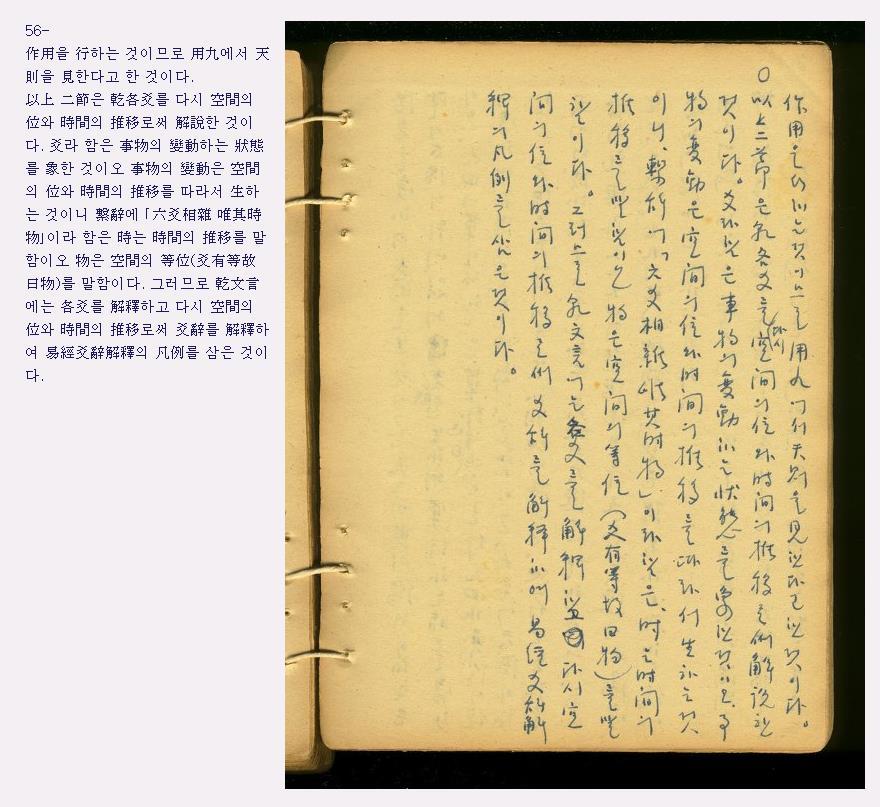 56-
作用을 行하는 것이므로 用九에서 天
則을 見한다고 한 것이다.
以上 二節은 乾各爻를 다시 空間의
位와 時間의 推移로써 解說한 것이
다. 爻라 함은 事物의 變動하는 狀態
를 象한 것이오 事物의 變動은 空間
의 位와 時間의 推移를 따라서 生하
는 것이니 繫辭에 ｢六爻相雜 唯其時
物｣이라 함은 時는 時間의 推移를 말
함이오 物은 空間의 等位(爻有等故
曰物)를 말함이다. 그러므로 乾文言
에는 各爻를 解釋하고 다시 空間의
位와 時間의 推移로써 爻辭를 解釋하
여 易經爻辭解釋의 凡例를 삼은 것이
다.
作用을 行하는 것이므로 用九에서 天則을 見한다고 한 것이다。
○以上二節은 乾各爻를 다시 空間의 位와 時間의 推移로써 解說한
것이다。爻라 함은 事物의 變動하는 狀態를 象한 것이오、事
物의 變動은 空間의 位와 時間의 推移를 따라서 生하는 것
이니、繫辭에「六爻相雜唯其時物」이라 함은、時는 時間의
推移를 말함이오 物은 空間의 等位(爻有等故曰物)를 말
함이다。그러므로 乾文言에는 各爻를 解釋하고 다시 空
間의 位와 時間의 推移로써 爻辭를 解釋하여 易經爻辭解
釋의 凡例를 삼은 것이다。